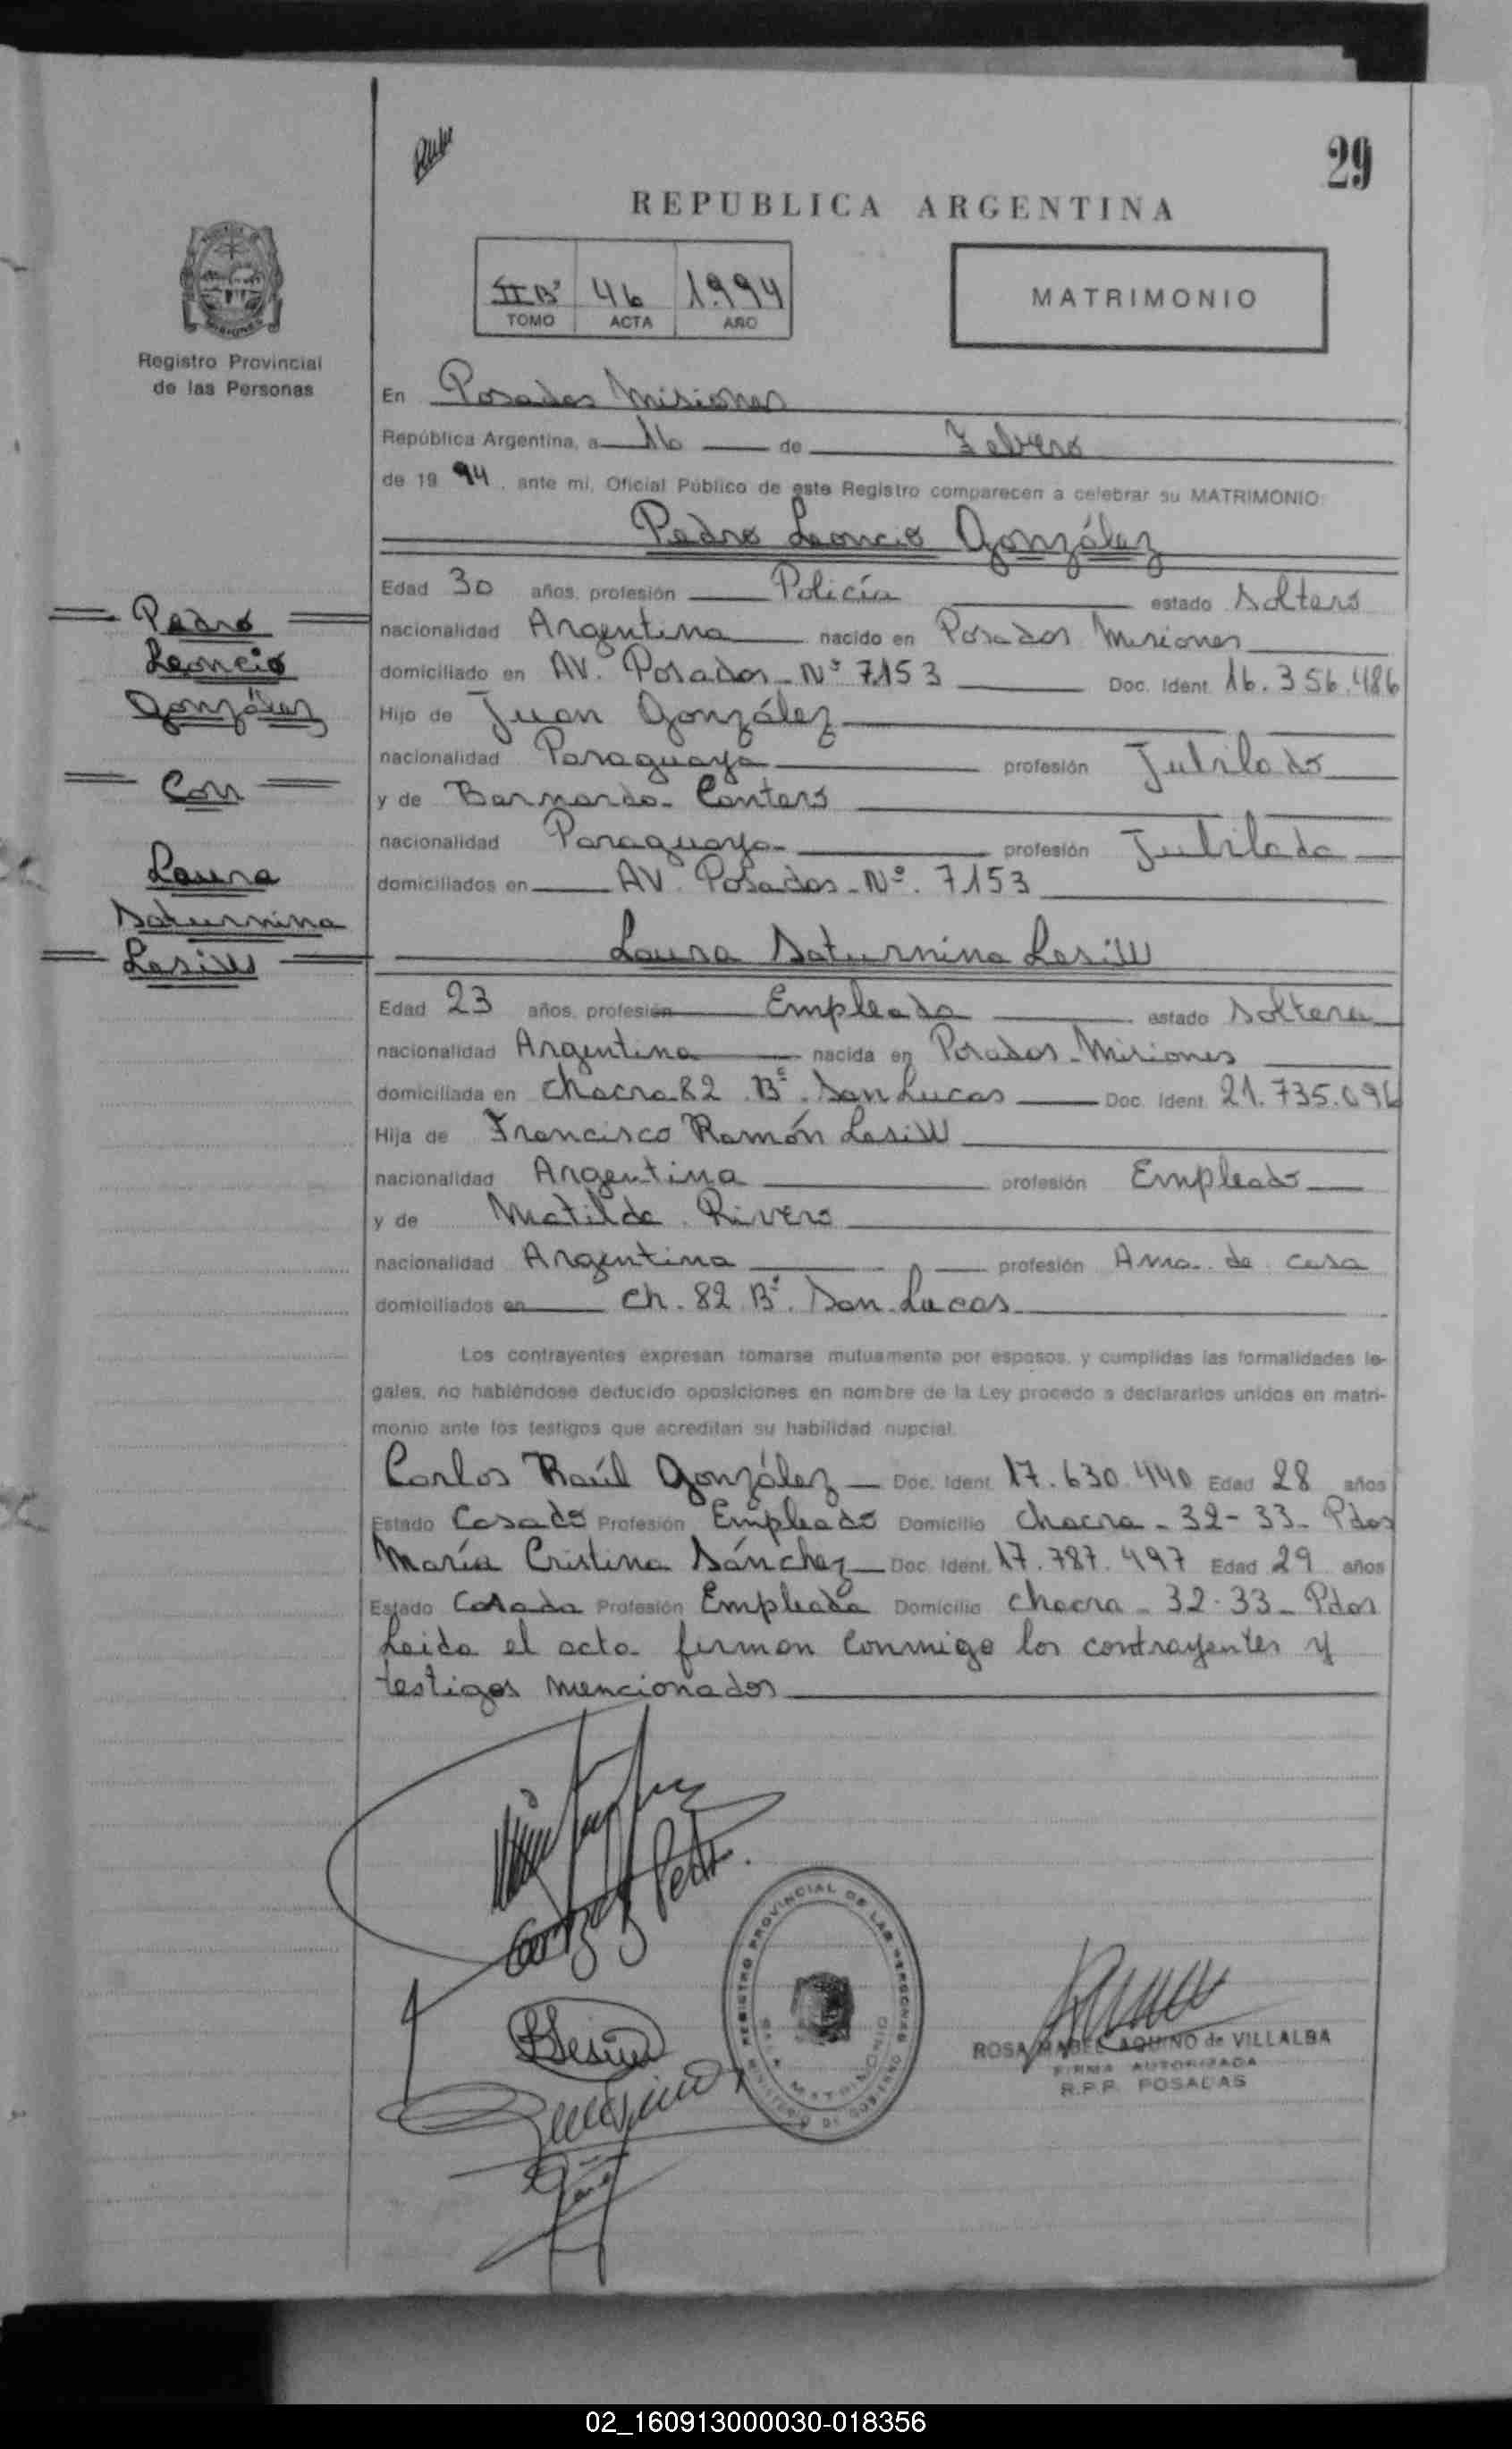 29
REPUBLICA ARGENTINA
II Bº 46 1.994
TOMO ACTA AÑO
MATRIMONIO
Registro Provincial
de las Personas
En Posadas Misiones
República Argentina, a 16 de Febrero
de 19 94, ante mí, Oficial Público de este Registro comparecen a celebrar su MATRIMONIO:
Pedro Leoncio González
Edad 30 años, profesión Policía estado Soltero
nacionalidad Argentina nacido en Posadas Misiones
domiciliado en AV. Posadas - Nº 7153 Doc. Ident. 16.356.486
Hijo de Juan González
nacionalidad Paraguaya profesión Jubilado
y de Bernarda Cantero
nacionalidad Paraguaya profesión Jubilada
domiciliados en AV. Posadas - Nº. 7153
Laura Saturnina Lesiw
Edad 23 años, profesión Empleada estado Soltera
nacionalidad Argentina nacida en Posadas - Misiones
domiciliada en chacra 82 Bº. San Lucas Doc. Ident. 21.735.096
Hija de Francisco Ramón Lesiw
nacionalidad Argentina profesión Empleado
y de Matilde Rivero
nacionalidad Argentina profesión Ama de casa
domiciliados en ch. 82 Bº. San Lucas
Los contrayentes expresan tomarse mutuamente por esposos, y cumplidas las formalidades le-
gales, no habiéndose deducido oposiciones en nombre de la Ley procedo a declararlos unidos en matri-
monio ante los testigos que acreditan su habilidad nupcial.
Carlos Raúl González Doc. Ident. 17.630.440 Edad 28 años
Estado Casado Profesión Empleado Domicilio Chacra - 32-33- Pdas
María Cristina Sánchez Doc. Ident. 17.787.497 Edad 29 años
Estado Casada Profesión Empleada Domicilio chacra - 32-33- Pdas
Leida el acta firman conmigo los contrayentes y
testigos mencionados
Pedro
Leoncio
González
Con
Laura
Saturnina
Lesiw
REGISTRO PROVINCIAL DE LAS PERSONAS
MINISTERIO DE GOBIERNO
SALA MATRIMONIO
ROSA MABEL AQUINO de VILLALBA
FIRMA AUTORIZADA
R.P.P. POSADAS
02_160913000030-018356